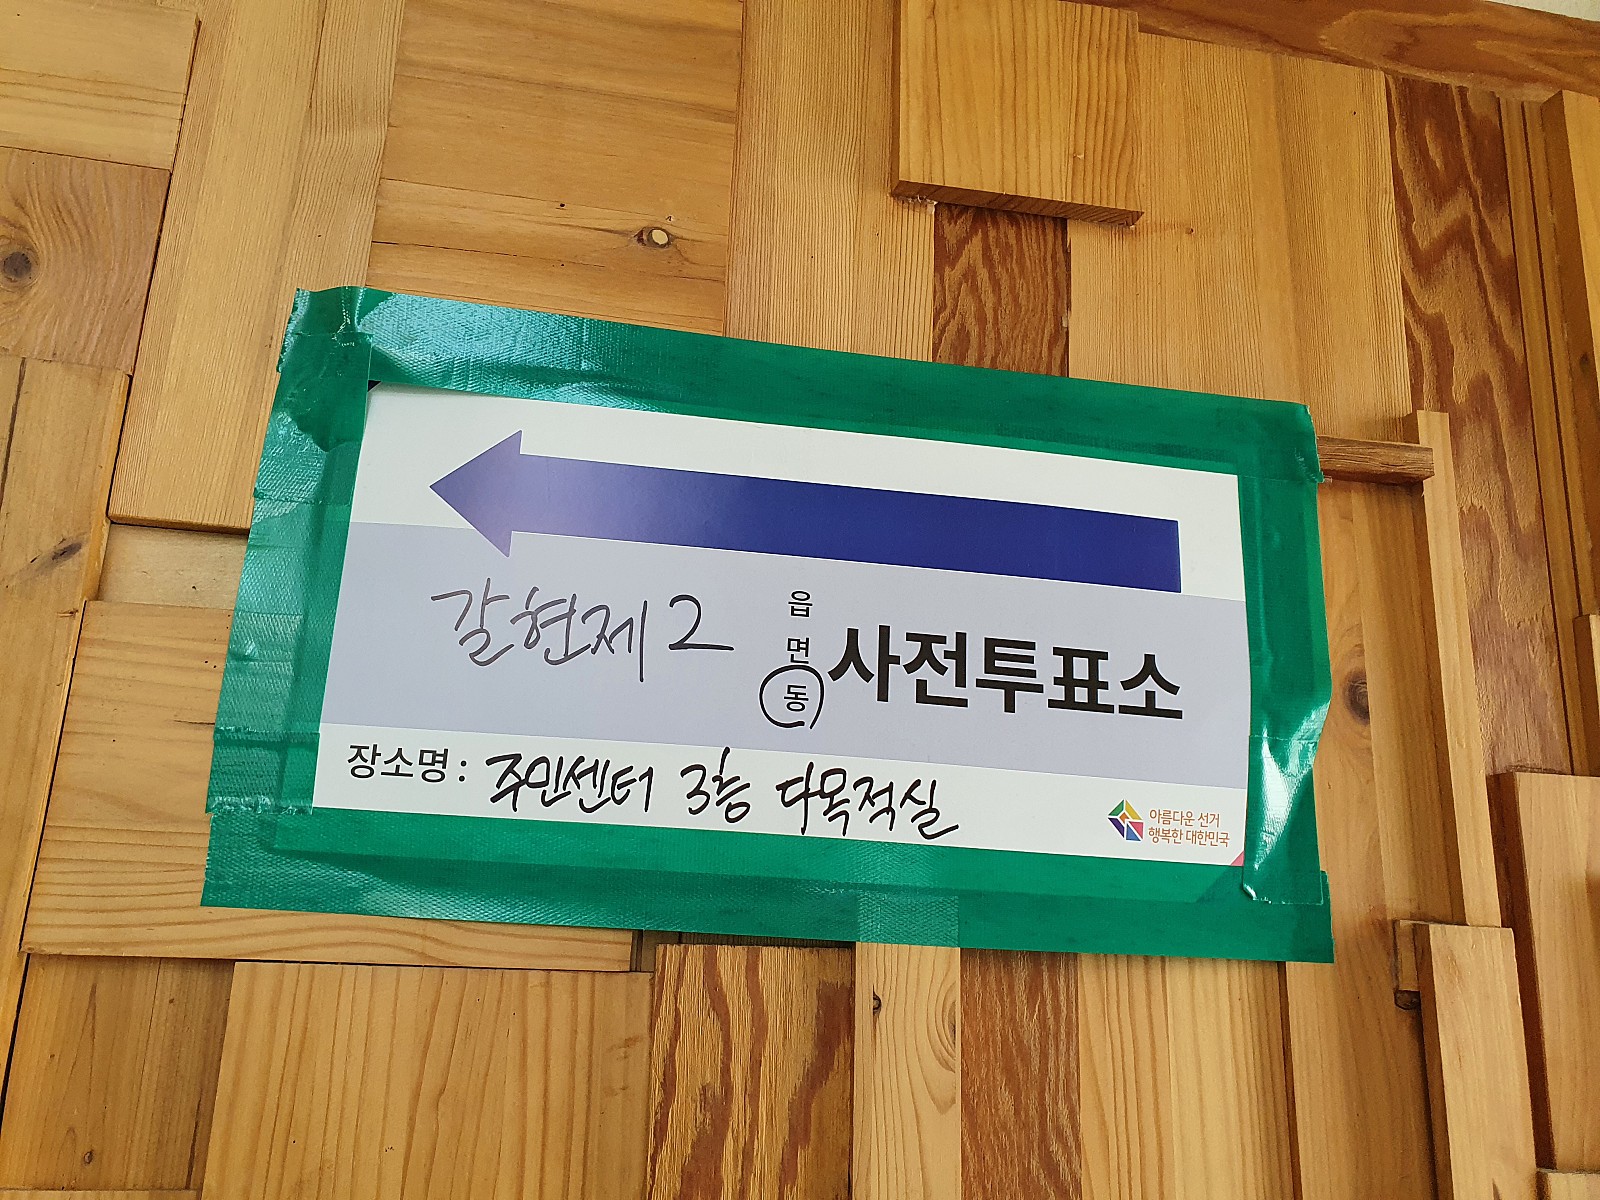 갈현제2 읍 면 동 사전투표소
장소명 : 주민센터 3층 다목적실
아름다운 선거
행복한 대한민국